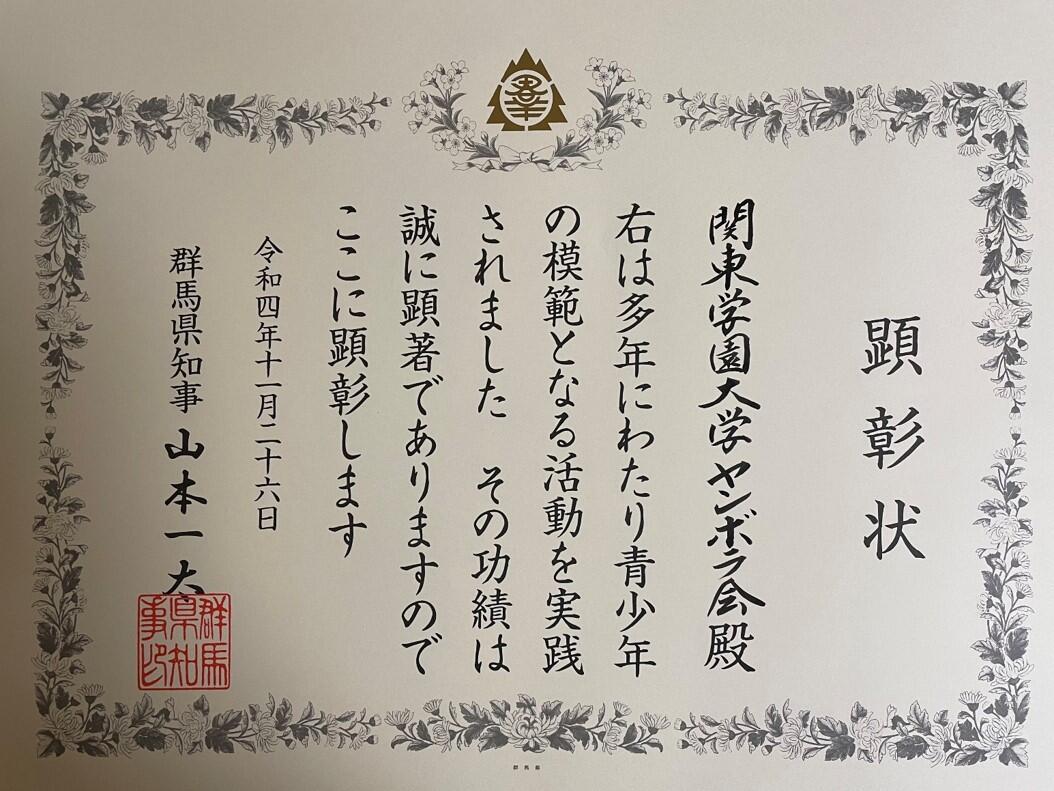 顕彰状
関東学園大学ヤンボラ会殿
右は多年にわたり青少年
の模範となる活動を実践
されました　その功績は
誠に顕著でありますので
ここに顕彰します
令和四年十一月二十六日
群馬県知事　山本一太
群馬
県知
事印
群馬県